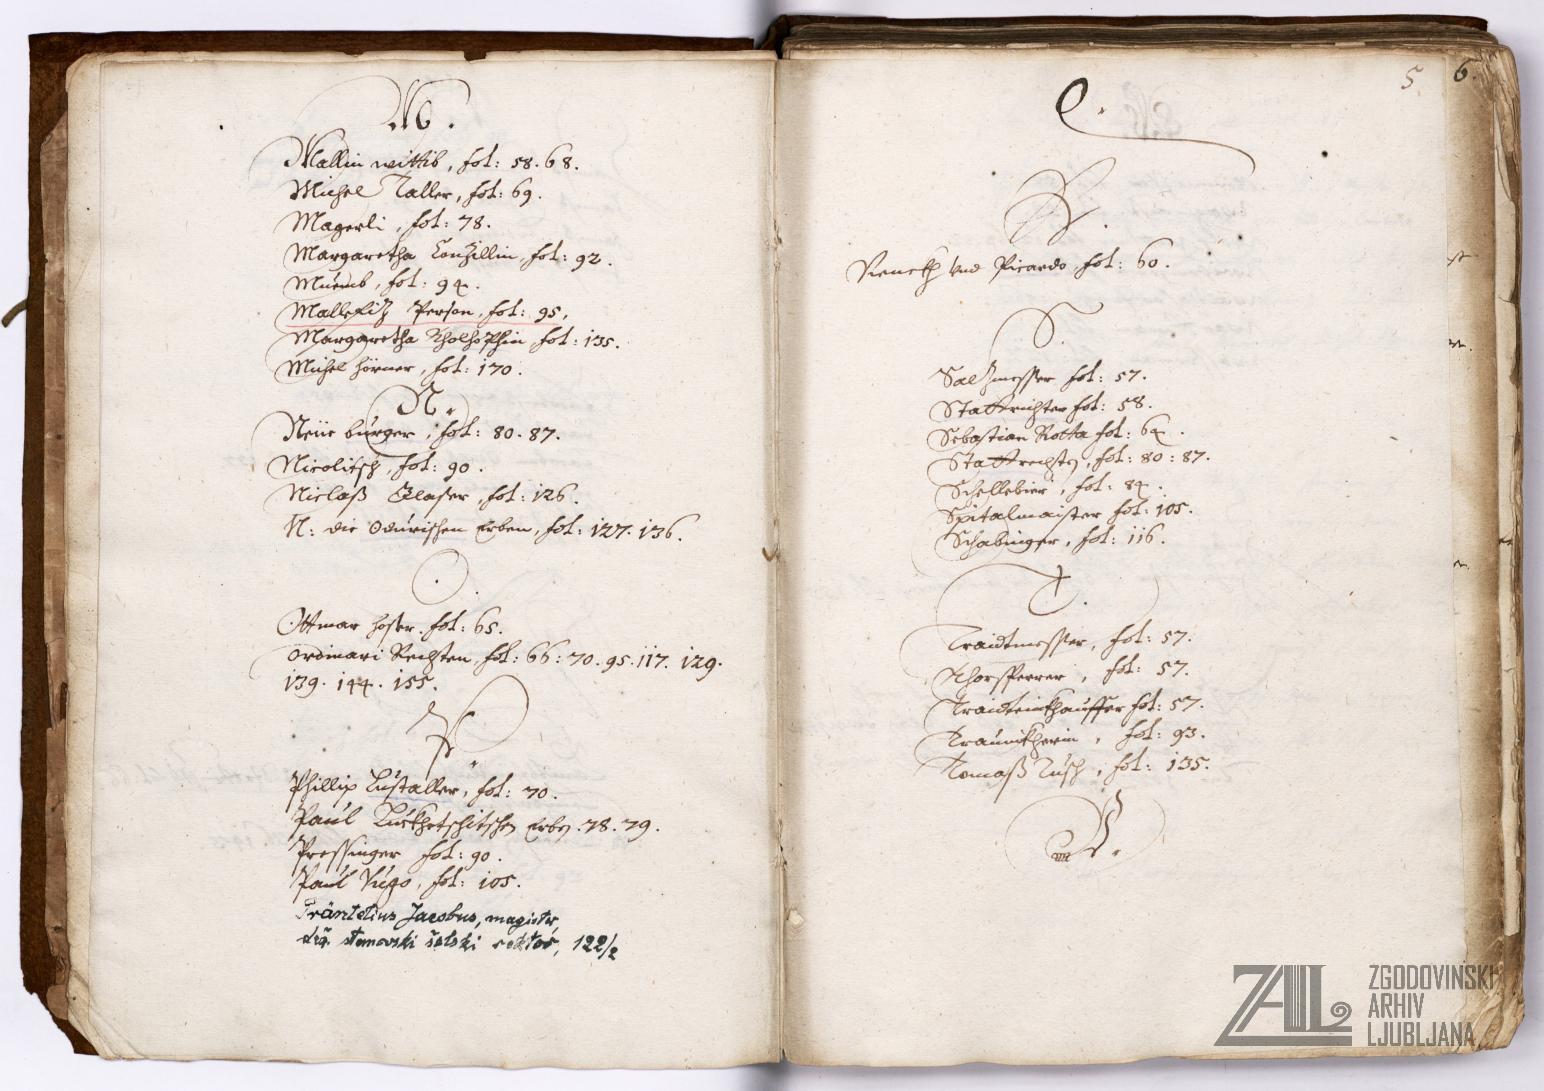 M.
Mallin wittib, fol: 58. 68.
Michel Taller, fol: 69.
Magerli, fol: 78.
Margaretha Conzillin, fol: 92.
fol: 94.
Mallefitz Person, fol: 95.
Margaretha fol: 135.
Michel Hörner, fol: 170.
N.
Neüe bürger, fol: 80. 87.
Nicolitsch, fol: 90.
Niclaß Glaser, fol: 126.
N: die Erben, fol: 127. 136.
O.
Ottmar Hoser. fol: 65.
Ordinari Rechten, fol: 66: 70. 95. 117. 129.
139. 144. 155.
P.
Phillip Lustaller, fol: 70.
Paul Erben. 78. 79.
Pressinger fol: 90.
Paul Hugo, fol: 105.
Jacobus, magister
stanovski šolski rektor, 122/2
5. 6.
Q.
R.
vnd Picardo fol: 60.
S.
Saltzmesser fol: 57.
Stattrichter fol: 58.
Sebastian Rotta fol: 64.
Stattrechten, fol: 80: 87.
Schellebier, fol: 84.
Spitalmaister fol: 105.
Schabinger, fol: 116.
T.
Traidtmesser, fol: 57.
Thorsperrer, fol: 57.
Traidteinkhauffer fol: 57.
fol: 93.
Tomaß Tusch, fol: 135.
V.
ZAL ZGODOVINSKI
ARHIV
LJUBLJANA